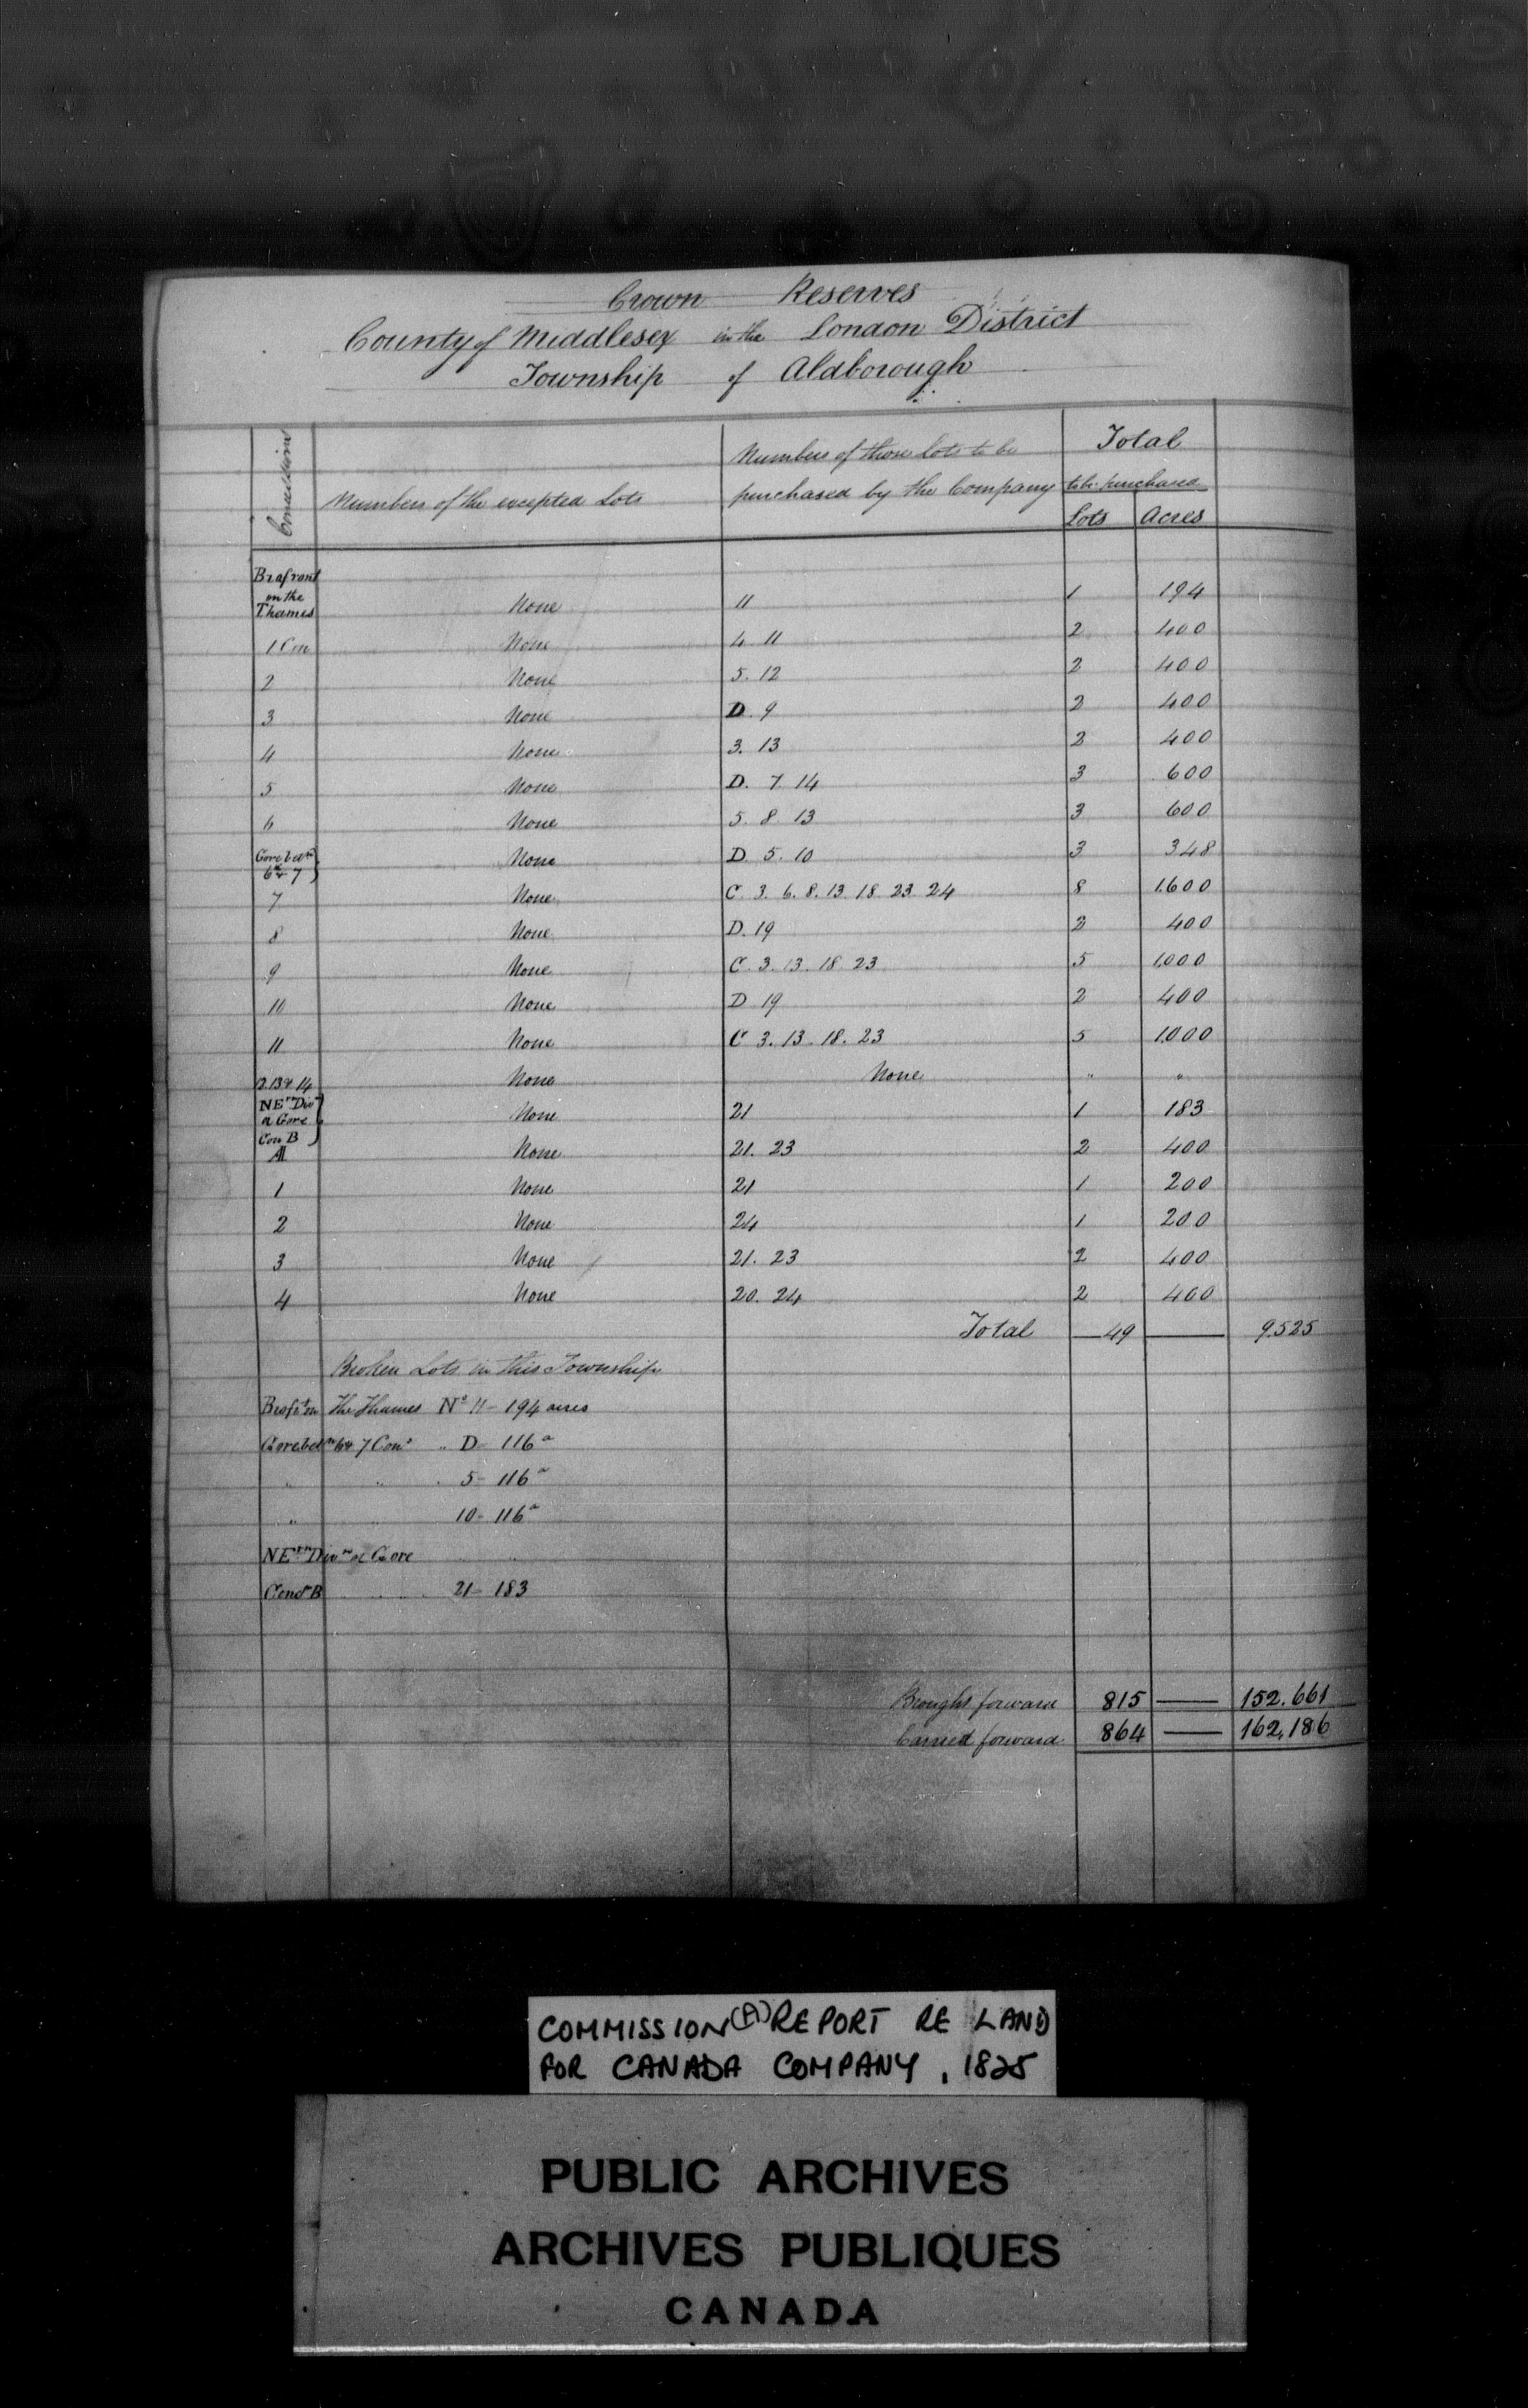 Crown Reserves
County of Middlesex in the London District
Township of Aldborough
Concession
Numbers of the excepted Lots
Numbers of those Lots to be purchased by the Company
Total to be purchased
Lots Acres
Bro front on the Thames None 11 1 194
1 Con None 4 11 2 400
2 None 5. 12 2 400
3 None D. 9 2 400
4 None 3. 13 2 400
5 None D. 7. 14 3 600
6 None 5. 8. 13 3 600
Gore betn 6 & 7 None D 5. 10 3 348
7 None C. 3. 6. 8. 13. 18. 23. 24 8 1.600
8 None D. 19 2 400
9 None C. 3. 13. 18. 23 5 1,000
10 None D 19 2 400
11 None C 3. 13. 18. 23 5 1.000
12.13 & 14 None None " "
NErn Divn a Gore Con B None 21 1 183
A None 21. 23 2 400
1 None 21 1 200
2 None 24 1 200
3 None 21. 23 2 400
4 None 20. 24 2 400
Total 49 9.525
Broken Lots in this Township
Bro ft on The Thames No 11 - 194 acres
Gore betn 6 & 7 Cons " D - 116a
" " 5 - 116a
" " 10 - 116a
NErn Divn a Gore " "
Cono B 21 - 183
Brought forward 815 152.661
Carried forward 864 162,186
COMMISSION (A) REPORT RE LAND
FOR CANADA COMPANY, 1825
PUBLIC ARCHIVES
ARCHIVES PUBLIQUES
CANADA